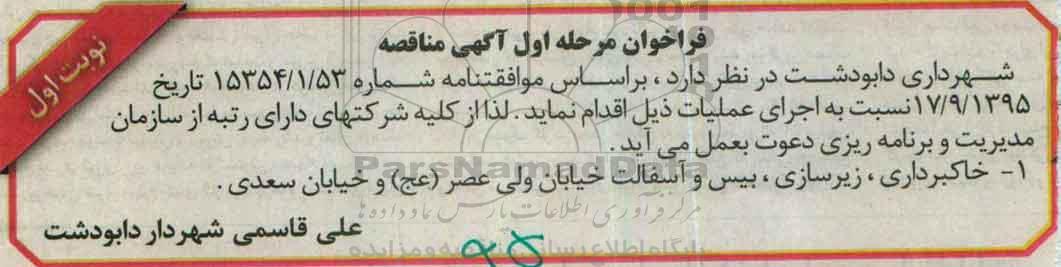 نوبت اول
فراخوان مرحله اول آگهی مناقصه
شهرداری دابودشت در نظر دارد ، براساس موافقتنامه شماره ۱۵۳۵۴/۱/۵۳ تاریخ
۱۷/۹/۱۳۹۵ نسبت به اجرای عملیات ذیل اقدام نماید . لذا از کلیه شرکتهای دارای رتبه از سازمان
مدیریت و برنامه ریزی دعوت بعمل می آید .
۱- خاکبرداری ، زیرسازی ، بیس و آسفالت خیابان ولی عصر (عج) و خیابان سعدی .
علی قاسمی شهردار دابودشت
ParsNamadData
مرکز فرآوری اطلاعات پارس نماد داده ها
پایگاه اطلاع رسانی مناقصه و مزایده